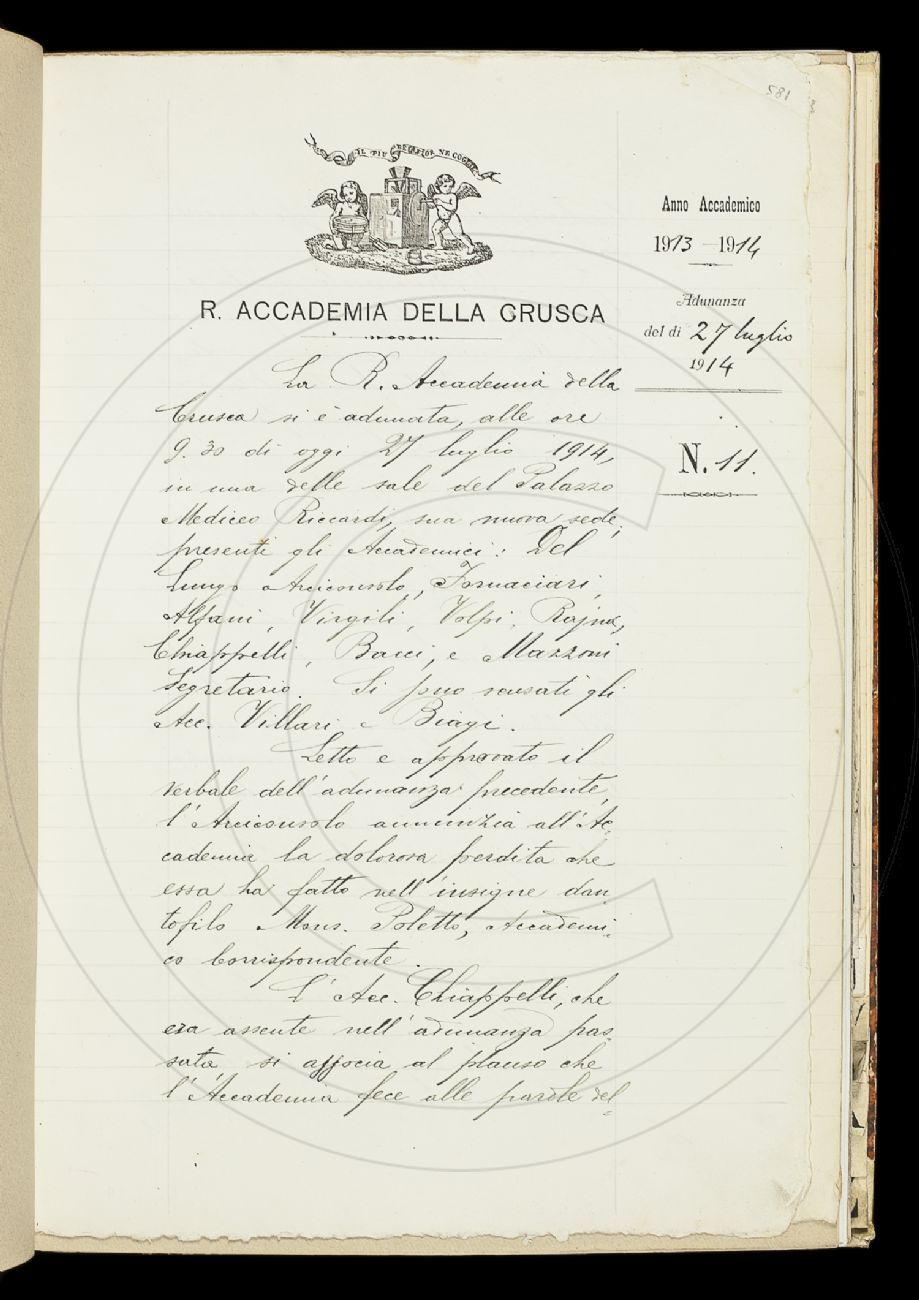 581
IL PIÙ BEL FIOR NE COGLIE
R. ACCADEMIA DELLA CRUSCA
Anno Accademico
1913-1914
Adunanza
del dì 27 luglio
1914
N. 11.
La R. Accademia della
Crusca si è adunata, alle ore
9.30 di oggi 27 luglio 1914,
in una delle sale del Palazzo
Mediceo Riccardi, sua nuova sede,
presenti gli Accademici: Del
Lungo Arciconsolo, Fornaciari,
Alfani, Virgili, Volpi, Rajna,
Chiappelli, Bacci, e Mazzoni
Segretario. Si sono scusati gli
Acc. Villari e Biagi.
Letto e approvato il
verbale dell'adunanza precedente,
l'Arciconsolo annunzia all'Ac-
cademia la dolorosa perdita che
essa ha fatto nell'insigne dan-
tofilo Mons. Poletto, Accademi-
co Corrispondente.
L'Acc. Chiappelli, che
era assente nell'adunanza pas-
sata, si associa al plauso che
l'Accademia fece alle parole del-